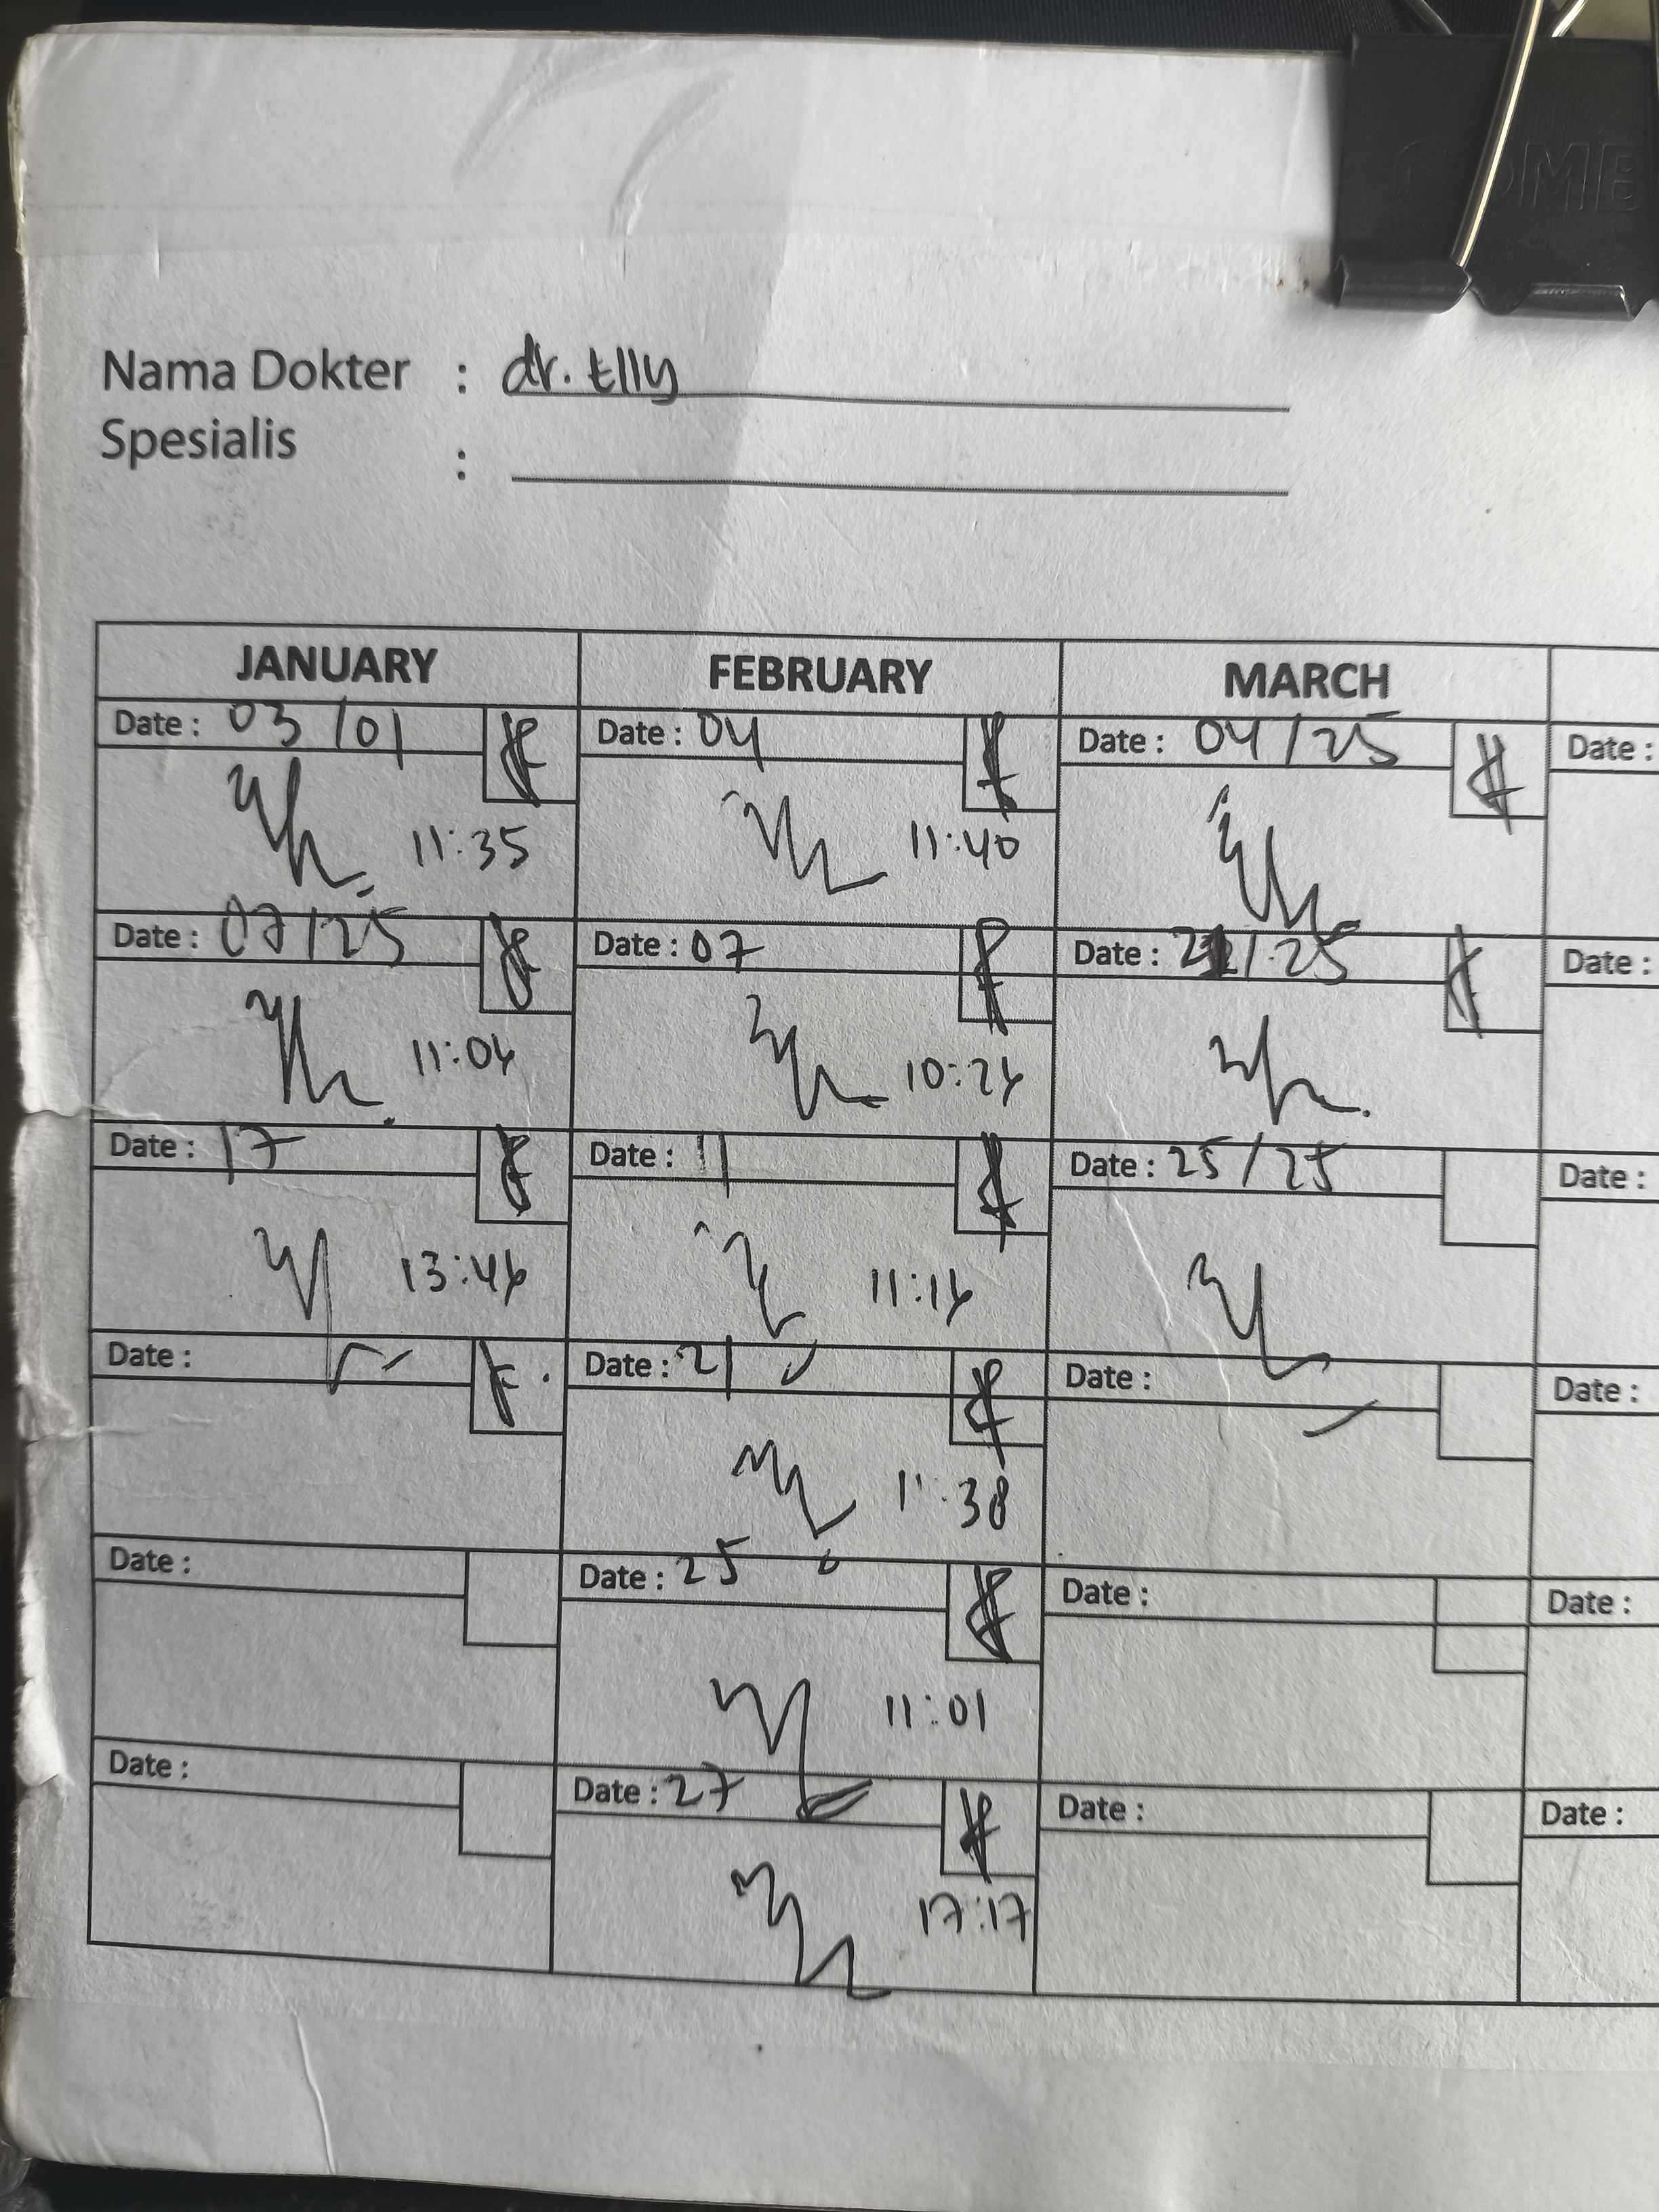 Nama Dokter : dr. Elly
Spesialis :
JANUARY FEBRUARY MARCH
Date : 03/01 Date : 04 Date : 04/25 Date :
11:35 11:40
Date : 07/25 Date : 07 Date : /25 Date :
11:04 10:24
Date : 17 Date : 11 Date : 25/25 Date :
13:46 11:14
Date : Date : 21 Date : Date :
11:38
Date : Date : 25 Date : Date :
11:01
Date : Date : 27 Date : Date :
17:17